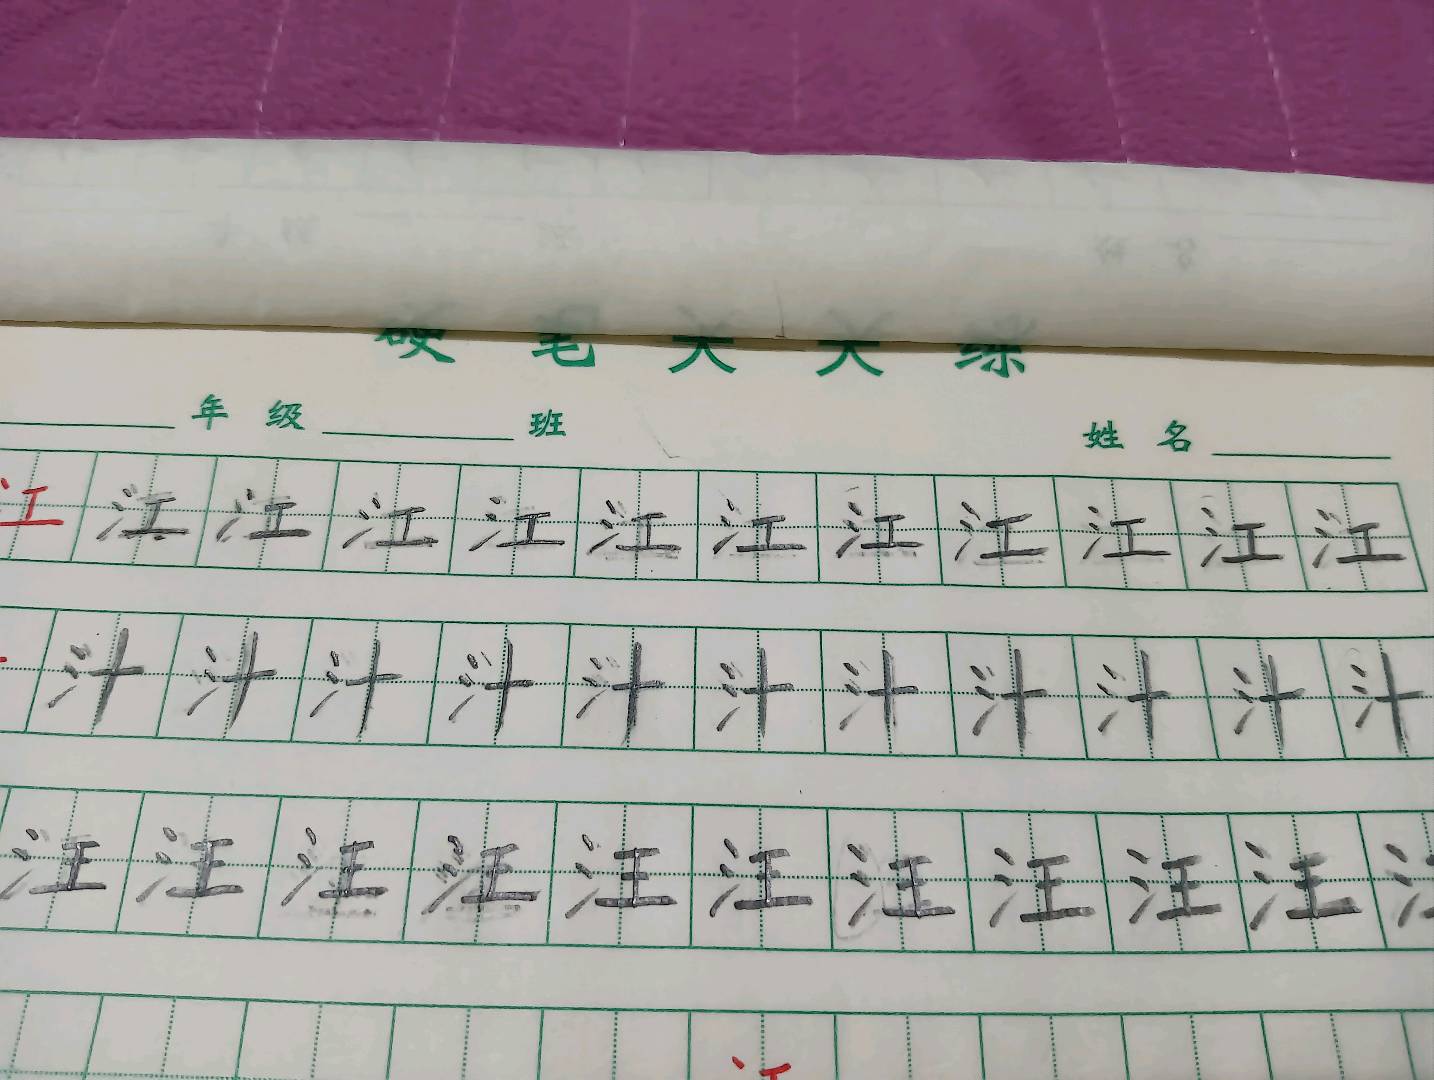 硬笔天天练
年级 班 姓名
江江江江江江江江江江江江
汁汁汁汁汁汁汁汁汁汁汁
汪汪汪汪汪汪汪汪汪汪汪